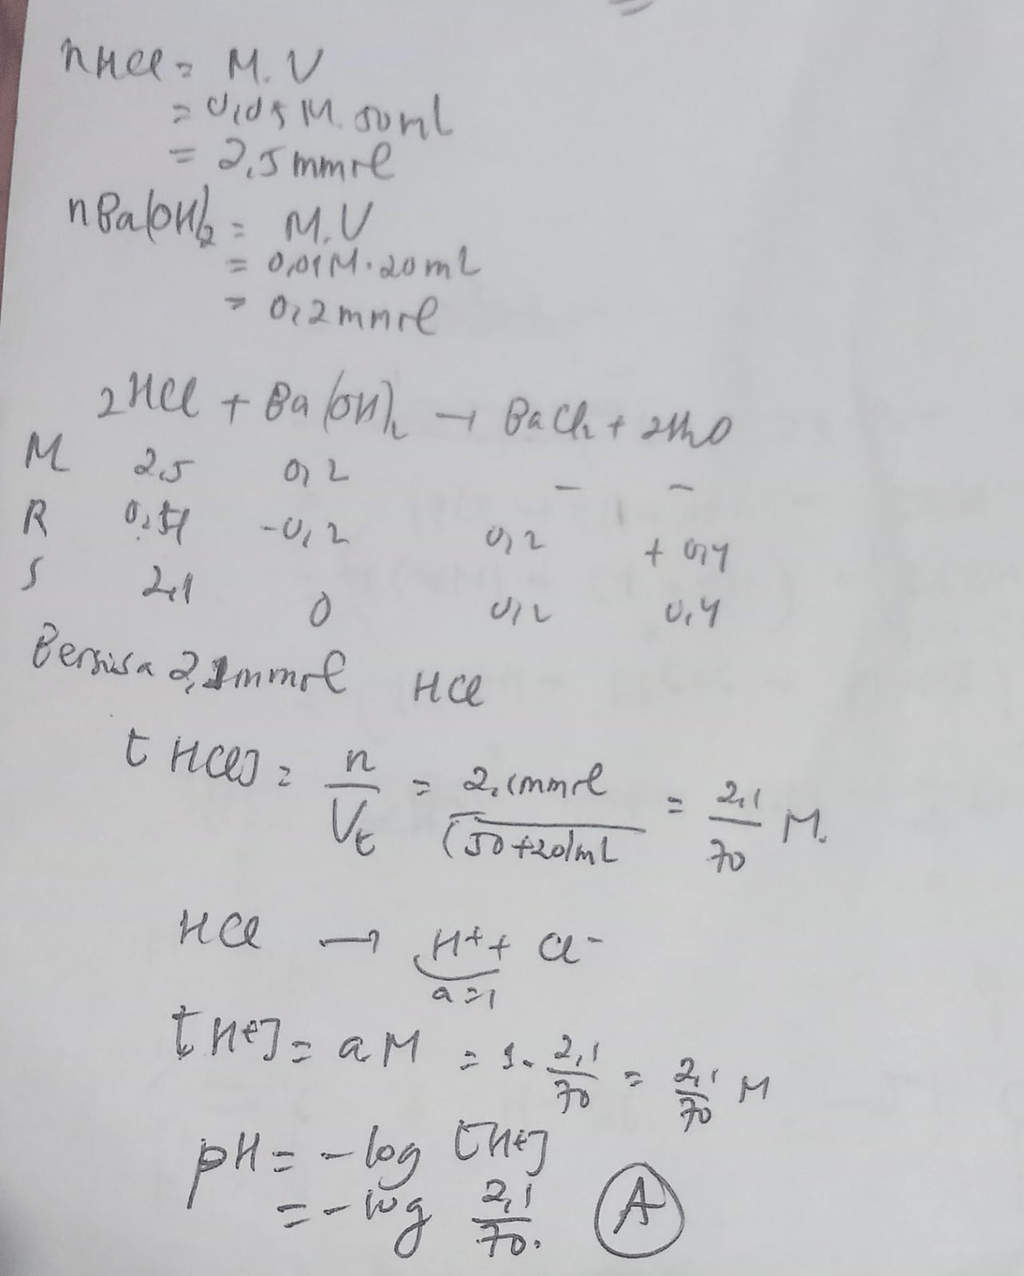 nHCl = M.V
= 0,05 M. 50 mL
= 2,5 mmol
nBa(OH)2 = M.V
= 0,01M. 20 mL
= 0,2 mmol
2HCl + Ba(OH)2 → BaCl2 + 2H2O
M 2,5 0,2 - -
R -0,2 0,2 + 0,4
S 2,1 0 0,2 0,4
Bersisa 2,1 mmol HCl
[HCl] = n/Vt = 2,1mmol/(50+20)mL = 2,1/70 M.
HCl → H+ + Cl-
a=1
[H+] = a.M = 1. 2,1/70 = 2,1/70 M
pH = -log [H+]
= -log 2,1/70. A